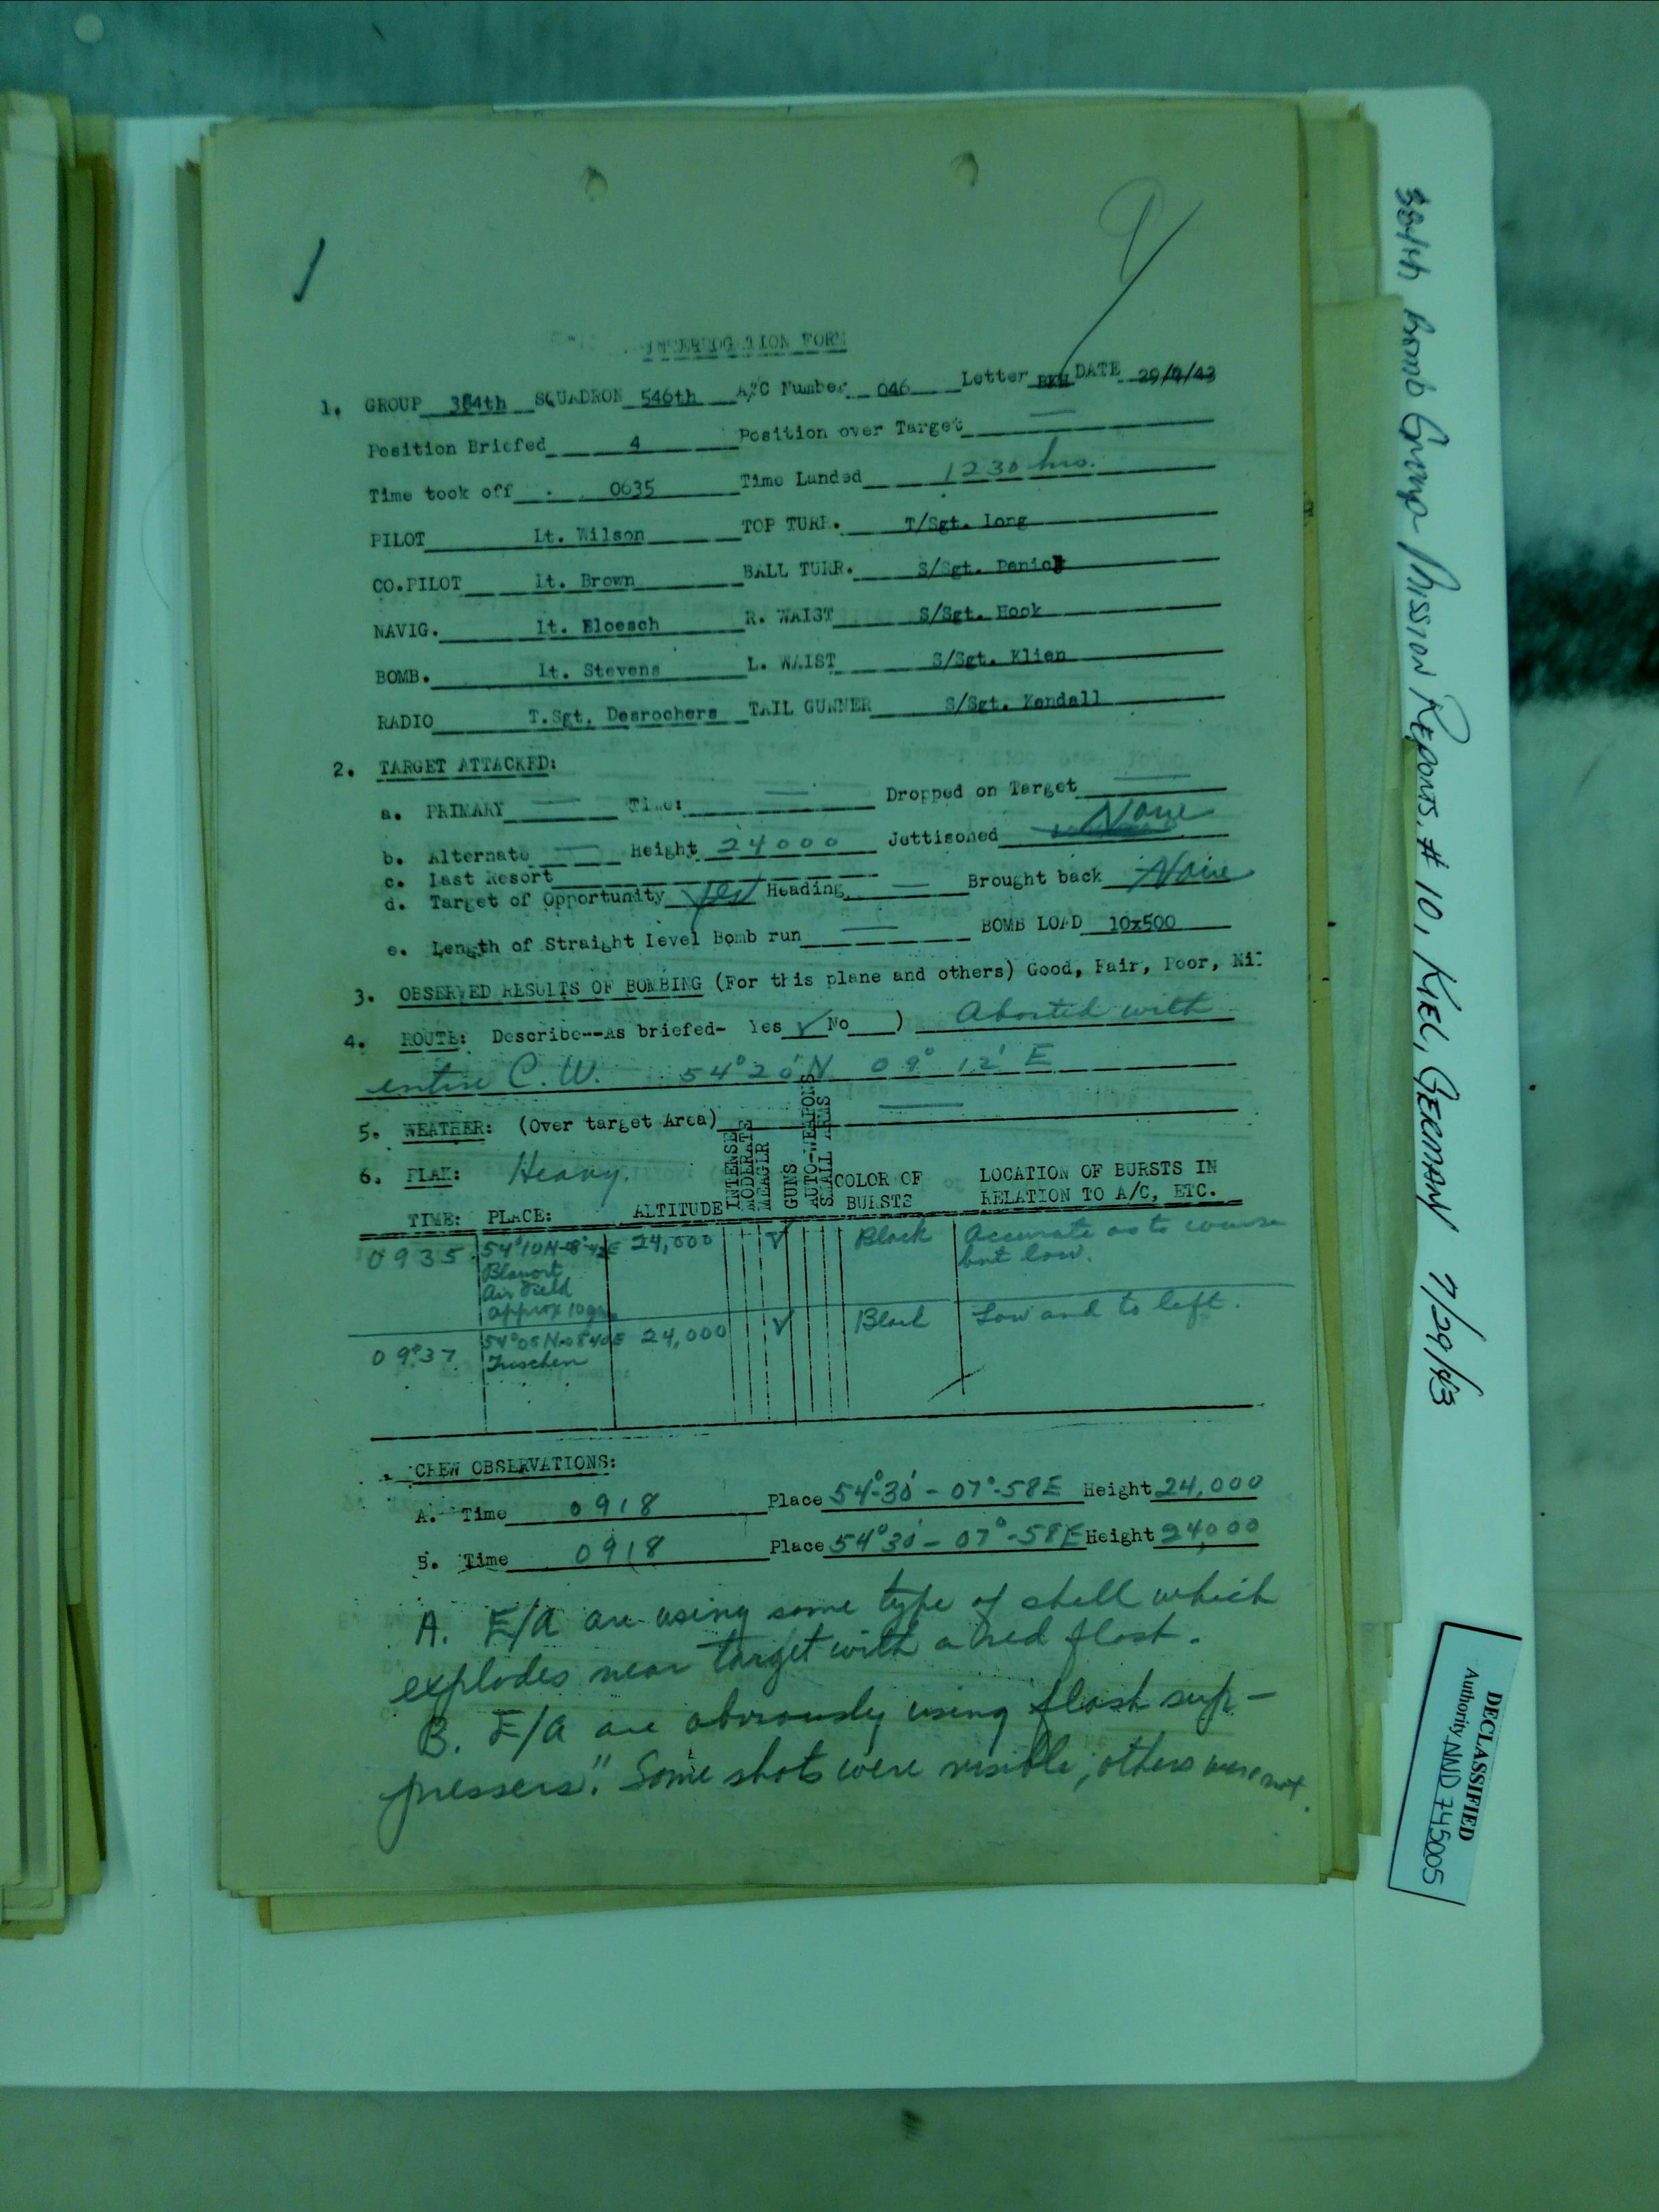 INTERROGATION FORM
1. GROUP 384th SQUADRON 546th A/C Number 046 Letter DATE 29/7/43
Position Briefed 4 Position over Target —
Time took off 0635 Time Landed 1230 hrs.
PILOT Lt. Wilson TOP TURR. T/Sgt. Long
CO.PILOT Lt. Brown BALL TURR. S/Sgt. Panic
NAVIG. Lt. Bloesch R. WAIST S/Sgt. Hook
BOMB. Lt. Stevens L. WAIST S/Sgt. Klien
RADIO T.Sgt. Desrochers TAIL GUNNER S/Sgt. Kendall
2. TARGET ATTACKED:
a. PRIMARY — Time: — Dropped on Target —
b. Alternate — Height 24000 Jettisoned None
c. Last Resort
d. Target of Opportunity Yes Heading — Brought back None
e. Length of Straight Level Bomb run — BOMB LOAD 10x500
3. OBSERVED RESULTS OF BOMBING (For this plane and others) Good, Fair, Poor, Nil
4. ROUTE: Describe--As briefed- Yes ✓ No ) Aborted with
entire C.W. 54°20'N 09° 12' E
5. WEATHER: (Over target Area) —
6. FLAK: Heavy.
TIME: PLACE: ALTITUDE INTENSE MODERATE MEAGER GUNS AUTO-WEAPONS SMALL ARMS COLOR OF BURSTS LOCATION OF BURSTS IN RELATION TO A/C, ETC.
0935 54°10N-8°42E 24,000 ✓ Black Accurate as to course
Blauort but low.
Air Field
approx 10 guns
0937 54°05N-0840E 24,000 ✓ Black Low and to left.
Trischen
CREW OBSERVATIONS:
A. Time 0918 Place 54°-30' - 07°-58E Height 24,000
B. Time 0918 Place 54°30' - 07°-58E Height 24,000
A. E/A are using some type of shell which
explodes near target with a red flash.
B. E/A are obviously using flash sup-
pressers." Some shots were visible; others were not.
384th Bomb Group Mission Reports # 10, KIEL, GERMANY 7/29/43
DECLASSIFIED
Authority NND 745005